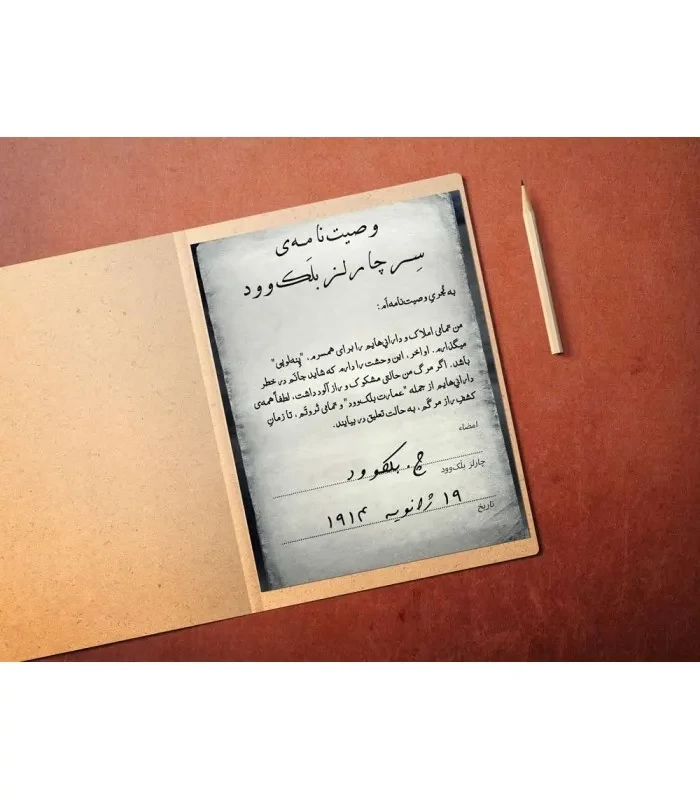 وصیت‌نامه‌ی
سِر چارلز بلَک‌وود
به مُجریِ وصیت‌نامه‌ام:
من تمامی املاک و دارائی‌هایم را برای همسرم، "پنه‌لوپی"
میگذارم. اواخر، این وحشت را دارم که شاید جانم در خطر
باشد. اگر مرگ من حالتی مشکوک و رازآلود داشت، لطفاً همه‌ی
دارائی‌هایم از جمله "عمارت بلک‌وود" و تمامی ثروتم، تا زمانِ
کشفِ راز مرگم، به حالت تعلیق در بیایند.
امضاء
چ. بلکوود
چارلز بلک‌وود
۱۹ ژانویه ۱۹۱۴
تاریخ